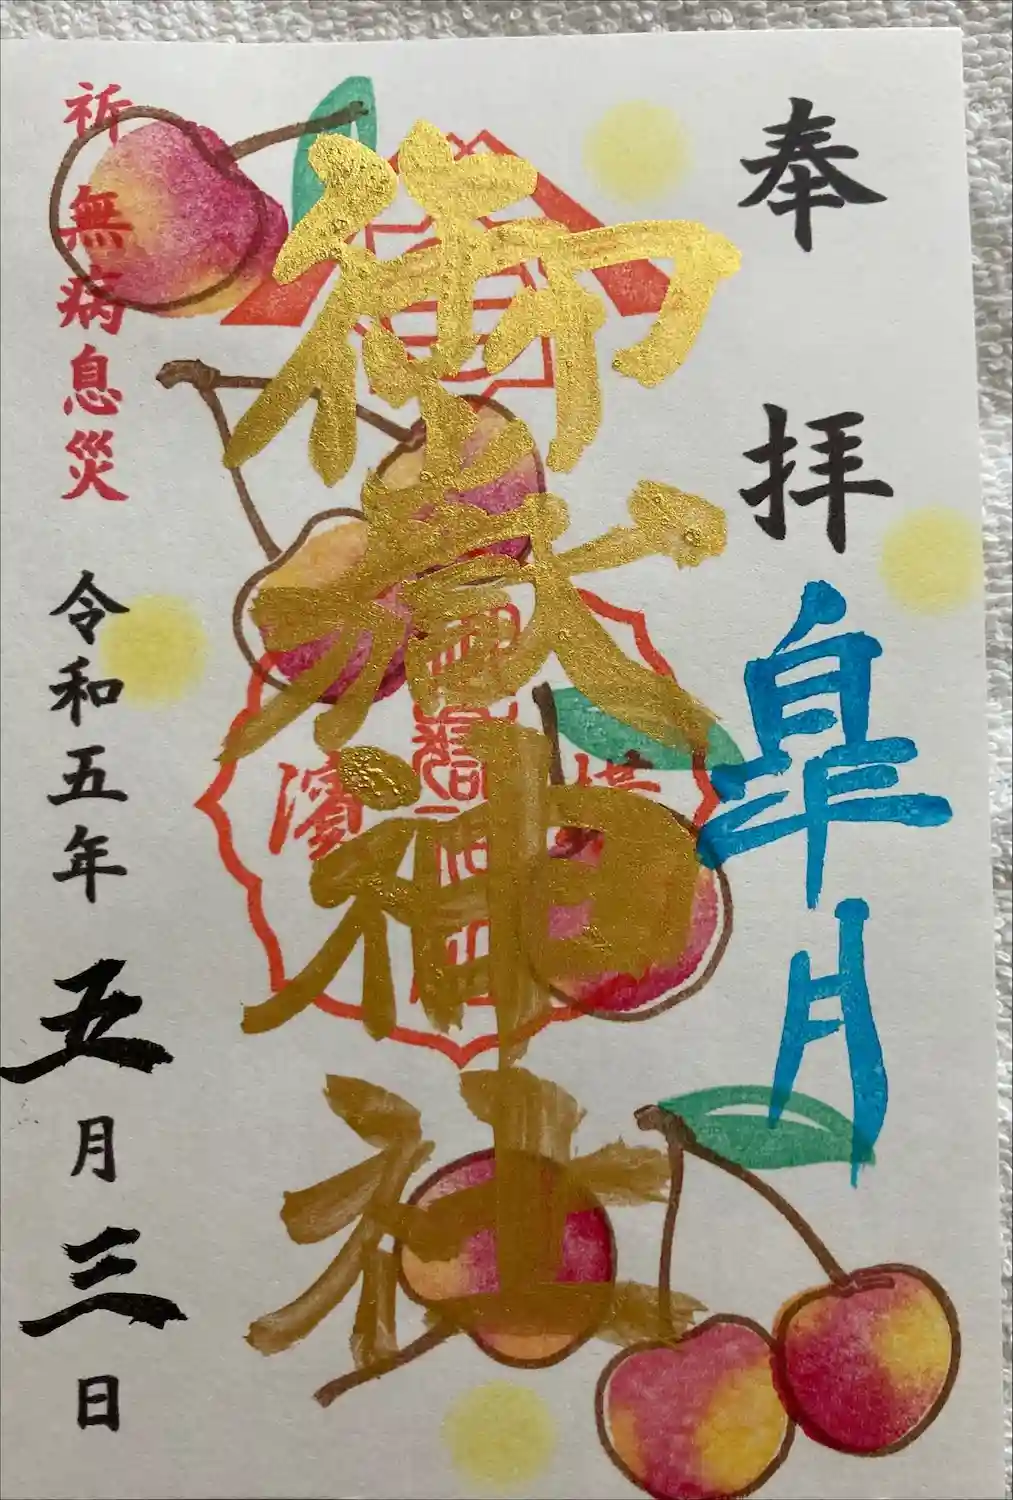 奉拝
皐月
御嶽神社
横濱
祈無病息災
令和五年五月三日